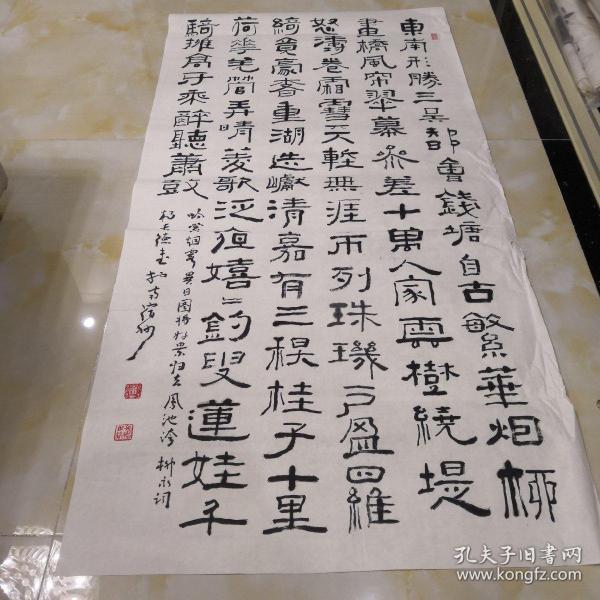 東南形勝三吳都會錢塘自古繁華烟柳
畫橋風帘翠幕參差十萬人家雲樹繞堤
怒濤卷霜雪天塹無涯市列珠璣户盈羅
綺竞豪奢重湖迭巘清嘉有三秋桂子十里
荷華羌管弄晴菱歌泛夜嬉〻釣叟蓮娃千
騎擁高牙乘醉聽蕭鼓
吟賞烟霞異日圖將好景归去鳳池夸 柳永詞
孔夫子旧书网
www.kongfz.com